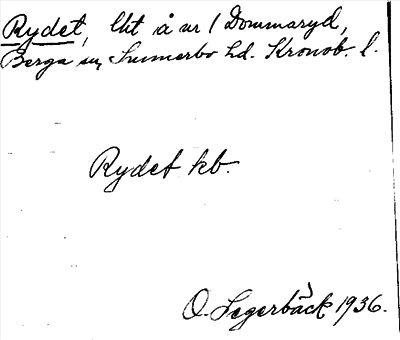 Rydet, lht å nr 1 Dommaryd,
Berga sn, Sunnerbo hd. Kronob. l.
Rydet kb.
O. Segerbäck 1936.